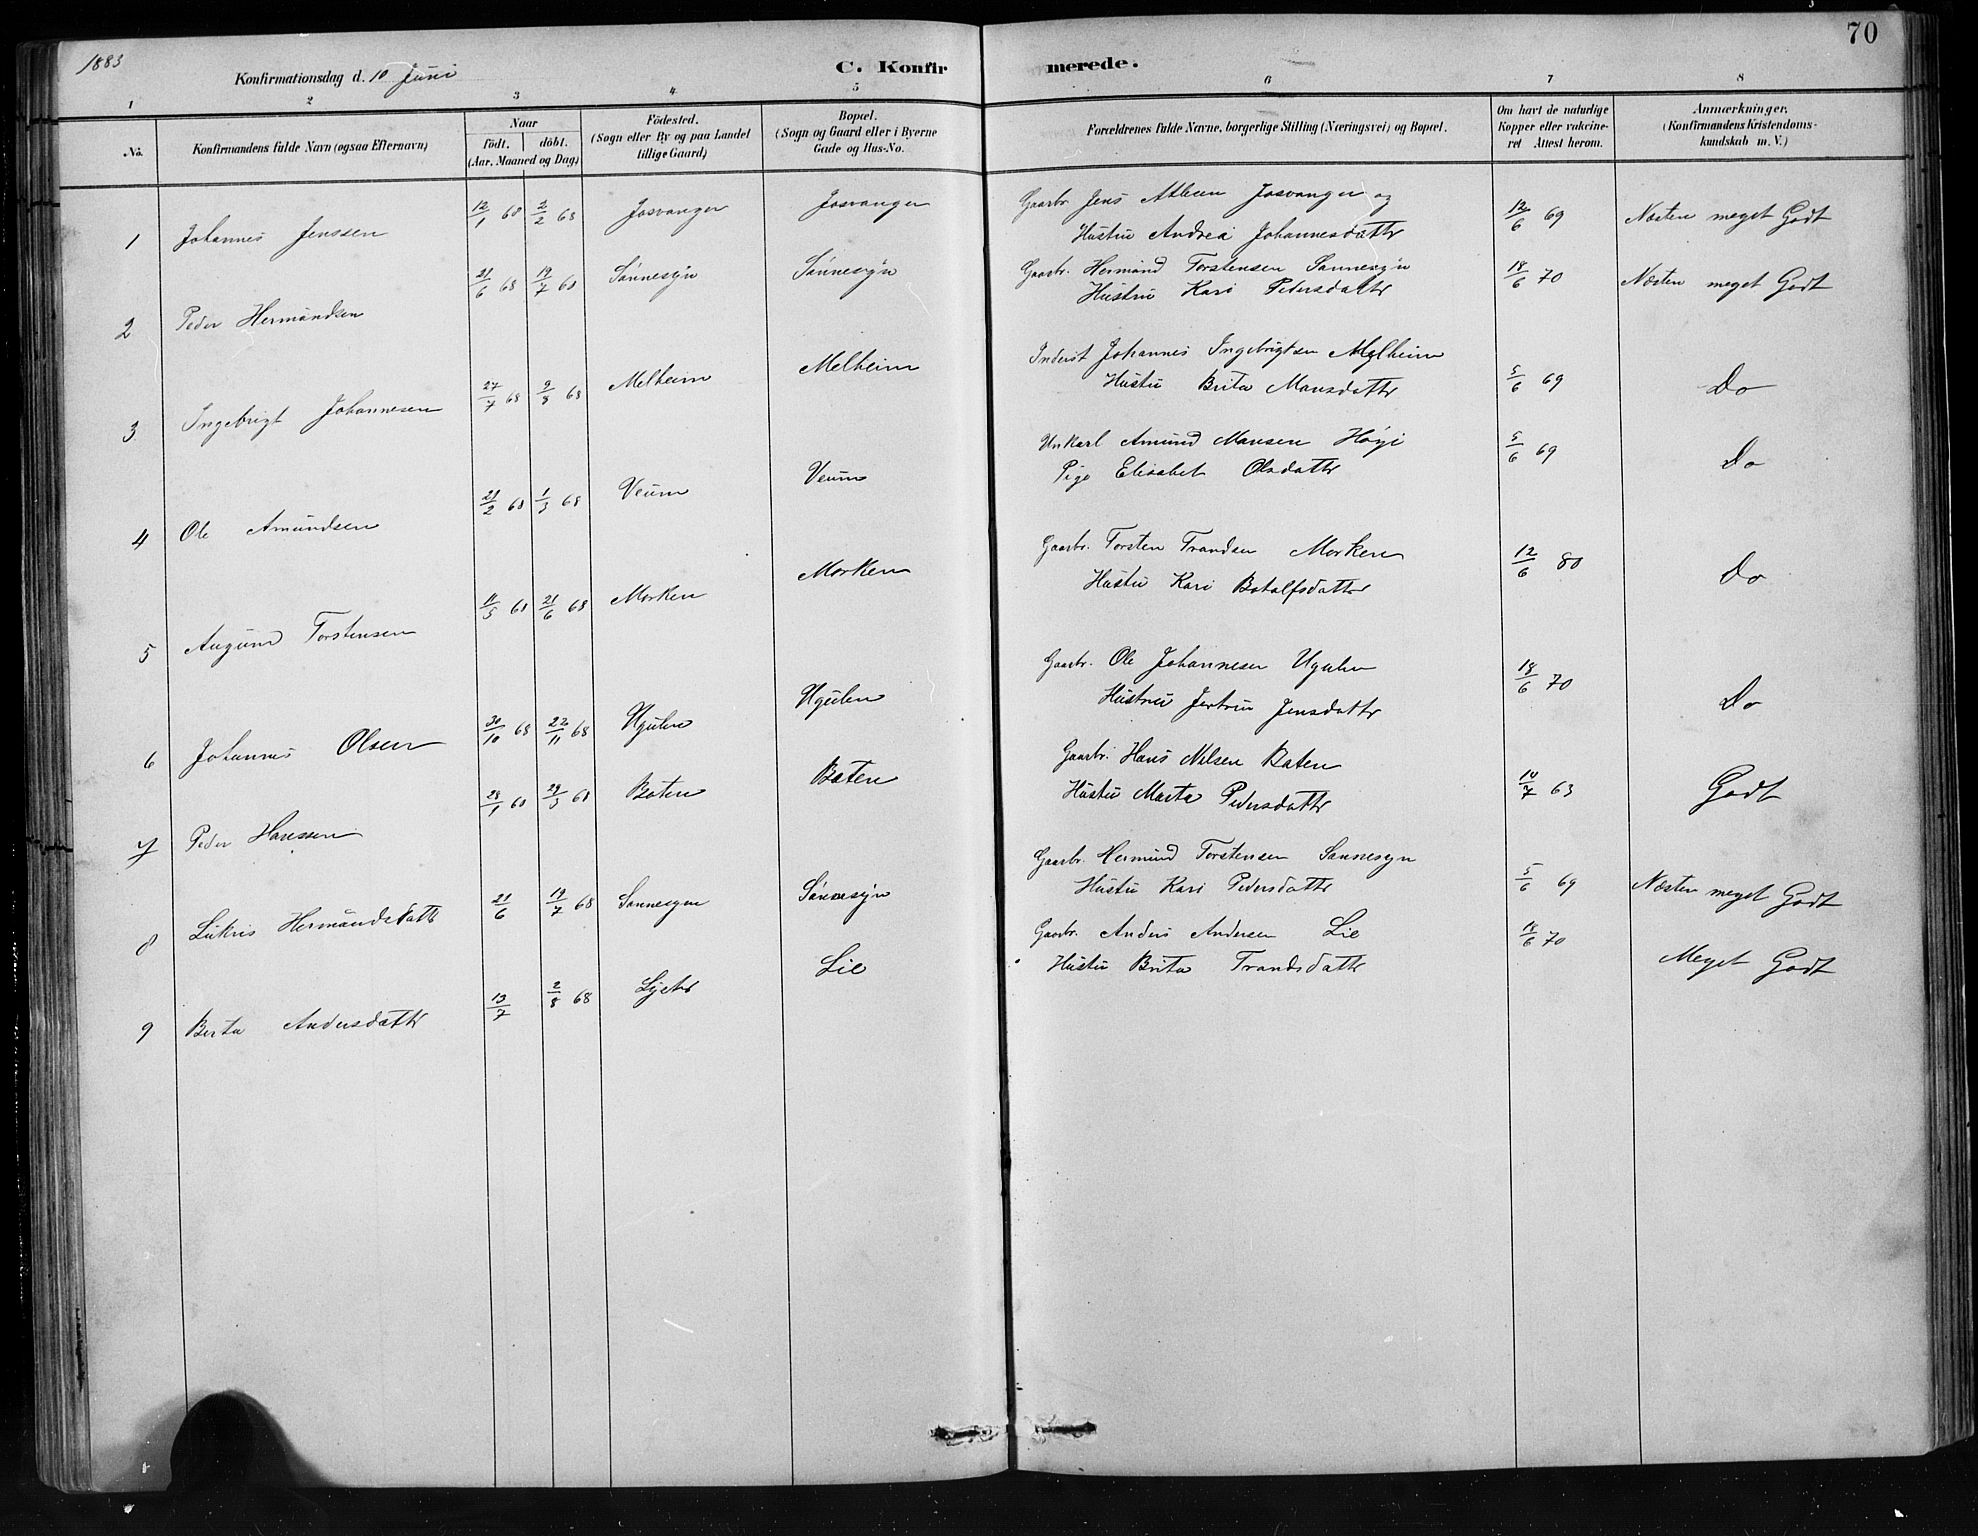 70
1883
Konfirmationsdag d. 10 Juni
C. Konfirmerede.
1 2 3 4 5 6 7 8
No.
Konfirmandens fulde Navn (ogsaa Efternavn)
Naar
födt. döbt.
(Aar, Maaned og Dag)
Födested.
(Sogn eller By og paa Landet
tillige Gaard)
Bopæl.
(Sogn og Gaard eller i Byerne
Gade og Hus-No.
Forældrenes fulde Navne, borgerlige Stilling (Næringsvei) og Bopæl.
Om havt de naturlige
Kopper eller vakcine-
ret Attest herom.
Anmærkninger.
(Konfirmandens Kristendoms-
kundskab m. V.)
1 Johannes Jenssen 12/1 68 2/2 68 Josvanger Josvanger Gaarbr Jens Josvanger og
Hustru Andrea Johannesdattr 12/6 69 Næsten meget Godt
2 Peder Hermundsen 21/6 68 19/7 68 Sønnesyn Sønnesyn Gaarbr. Hermund Torstensen Sønnesyn
Hustru Kari Pedersdattr 18/6 70 Næsten meget Godt
3 Ingebrigt Johannesen 27/7 68 9/8 68 Melheim Melheim Inderst Johannes Ingebrigtsen Melheim
Hustru Brita Monsdattr 5/6 69 Do
4 Ole Amundsen 21/2 68 1/3 68 Veum Veum Unkarl Amund Monsen Høyi
Pige Elisabet Olsdattr 5/6 69 Do
5 Augund Torstensen 11/5 68 21/6 68 Morken Morken Gaarbr. Torsten Trondsen Morken
Hustru Kari Botolfsdattr 12/6 80 Do
6 Johannes Olsen 30/10 68 22/11 68 Ugulen Ugulen Gaarbr. Ole Johannesen Ugulen
Hustru Jertru Jensdattr 18/6 70 Do
7 Peder Hanssen 28/1 68 29/3 68 Boten Boten Gaarbr. Hans Nilsen Boten
Hustru Marta Pedersdattr 10/7 63 Godt
8 Lukris Hermundsdattr 21/6 19/7 68 Sønnesyn Sønnesyn Gaarbr. Hermund Torstensen Sønnesyn
Hustru Kari Pedersdattr 5/6 69 Næsten meget Godt
9 Berta Andersdattr 13/7 2/8 68 Lie Gaarbr. Anders Andersen Lie
Hustru Brita Trondsdattr 18/6 70 Meget Godt